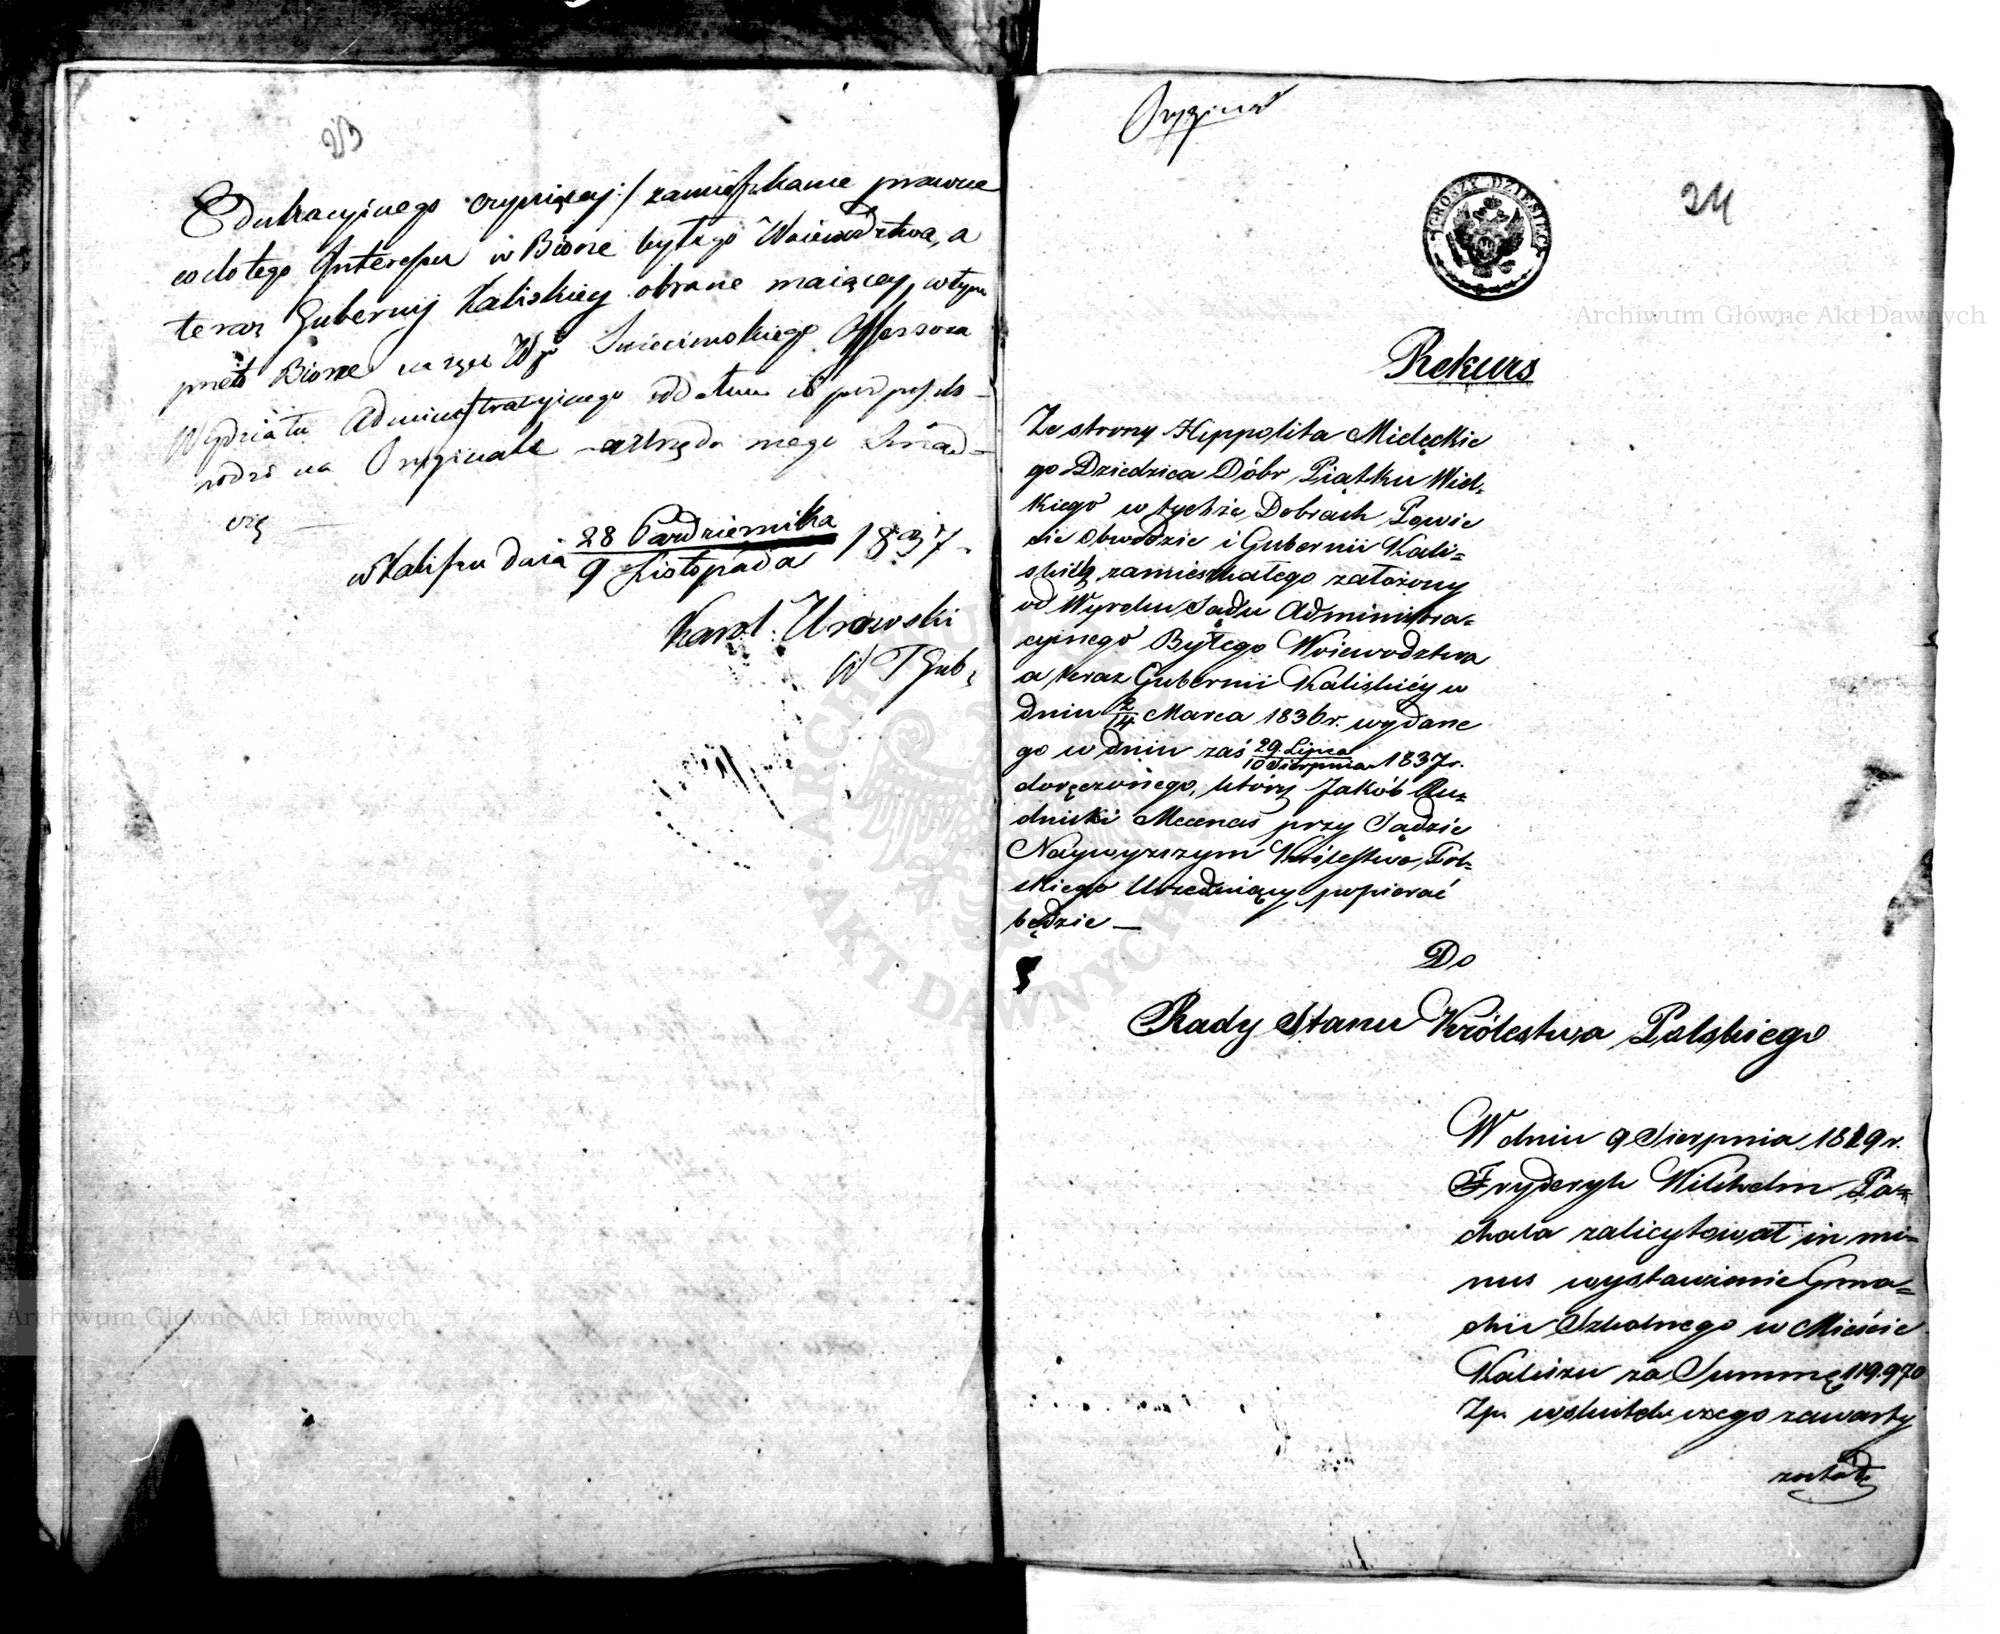 23
Edukacyjnego czyniącej:/ zamieszkanie prawne
co do tego Interessu w Biórze byłego Województwa, a
teraz Gubernij Kaliskiey obrane maiącey, w tym
przeto Biórze na ręce Wgo Assessora
Wydziału Administracyjnego oddałem i to podpisem
na Oryginale z urzędu mego świad-
czę —
w Kaliszu dnia 28 Października / 9 Listopada 1837.
Karol Urowski
W T Gub.
Oryginał
24
GROSZY DZIESIĘĆ
Rekurs
Ze strony Hippolita Mielęckie
go Dziedzica Dóbr Piątku Wiel-
kiego w tychże Dobrach Powie
cie Obwodzie i Gubernii Kali=
skiéy zamieszkałego założony
od Wyroku Sądu Administra=
cyjnego Byłego Woiewodztwa
a teraz Gubernii Kaliskiéy w
dniu 2/14 Marca 1836 r. wydane
go w dniu zaś 29 Lipca / 10 Sierpnia 1837 r.
doręczonego, który Jakób Ru=
dnicki Mecenas przy Sądzie
Naywyższym Królestwa Pol-
skiego Urzęduiący popierać
będzie —
Do
Rady Stanu Królestwa Polskiego
W dniu 9 Sierpnia 1819 r.
Fryderyk Wilhelm Pa=
chala zalicytował in mi=
nus wystawienie Gma=
chu Szkolnego w Mieście
Kaliszu za Summę 119.970
Zp. wskutek czego zawarty
został
Archiwum Główne Akt Dawnych
Archiwum Główne Akt Dawnych
ARCHIWUM
AKT DAWNYCH